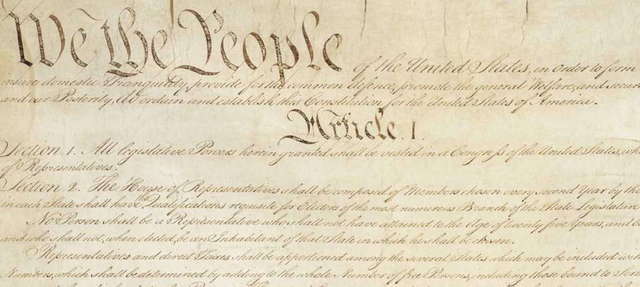 We the People of the United States, in Order to form
insure domestic Tranquility, provide for the common defence, promote the general Welfare, and secure
and our Posterity, do ordain and establish this Constitution for the United States of America.
Article. I.
Section. 1. All legislative Powers herein granted shall be vested in a Congress of the United States, which
of Representatives.
Section. 2. The House of Representatives shall be composed of Members chosen every second Year by the
in each State shall have the Qualifications requisite for Electors of the most numerous Branch of the State Legislature
No Person shall be a Representative who shall not have attained to the Age of twenty five Years, and
and who shall not, when elected, be an Inhabitant of that State in which he shall be chosen.
Representatives and direct Taxes shall be apportioned among the several States which may be included within
Numbers, which shall be determined by adding to the whole Number of free Persons, including those bound to